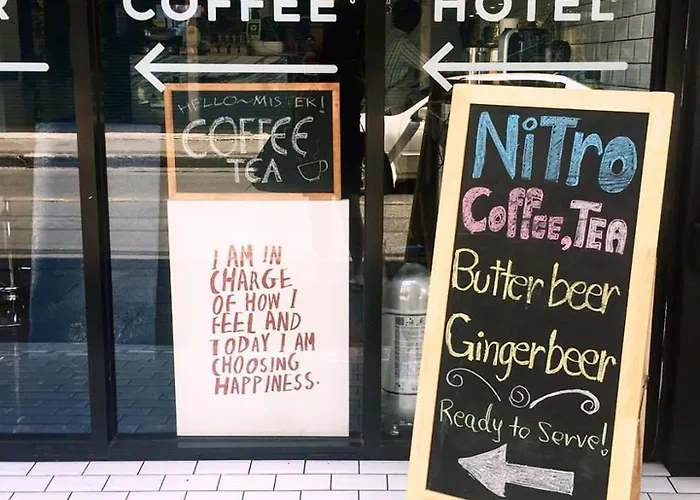 R
COFFEE
HOTEL
HELLO~MISTER!
COFFEE
TEA
I AM IN
CHARGE
OF HOW I
FEEL AND
TODAY I AM
CHOOSING
HAPPINESS.
NiTro
Coffee, TEA
Butter beer
Gingerbeer
Ready to Serve!